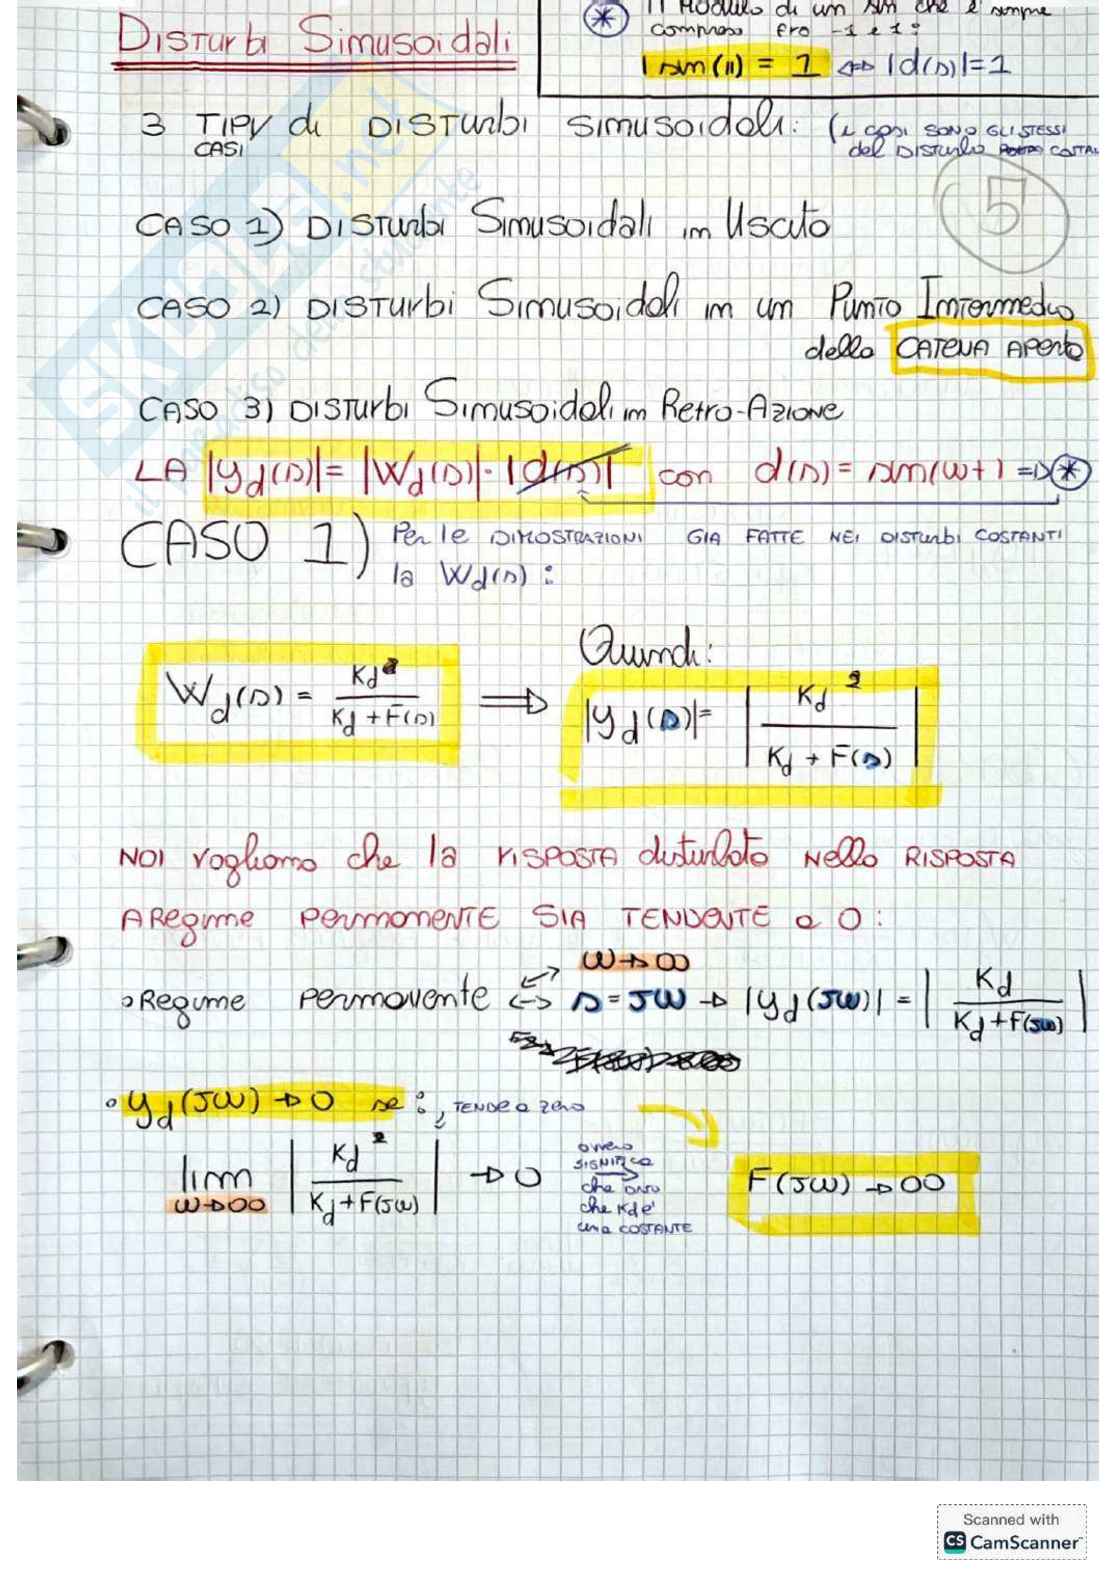 Disturbi Sinusoidali
* Il Modulo di un sin che è sempre
compreso fra -1 e 1:
|sin(")| = 1 ⇔ |d(s)|=1
3 TIPI di DISTURbi SINUSOIDALI: (I casi SONO GLI STESSI
CASI
del DISTURbo COSTAN
5
CASO 1) DISTURbi Sinusoidali in Uscita
CASO 2) DISTURbi Sinusoidali in un Punto Intermedio
della CATENA APERTA
CASO 3) DISTURbi Sinusoidali in Retro-Azione
LA |yd(s)| = |Wd(s)|·|d(s)| con d(s) = sin(wt) => *
CASO 1) Per le DIMOSTRAZIONI GIA FATTE NEI DISTURbi COSTANTI
la Wd(s) :
Quindi:
Wd(s) = Kd² / (Kd + F(s)) ⟹ |yd(s)| = | Kd² / (Kd + F(s)) |
NOI vogliamo che la RISPOSTA disturbata Nella RISPOSTA
A Regime PERMANENTE SIA TENDENTE a 0:
w→∞
• Regime permanente ↔ s = Jw → |yd(Jw)| = | Kd / (Kd + F(Jw)) |
• yd(Jw) → 0 se :, TENDE a zero
lim w→∞ | Kd² / (Kd + F(Jw)) | → 0
ovvero
SIGNIFICA
che
che Kd è
una COSTANTE
F(Jw) → ∞
SKUOLA.net
il paradiso dello studente
Scanned with
CS CamScanner